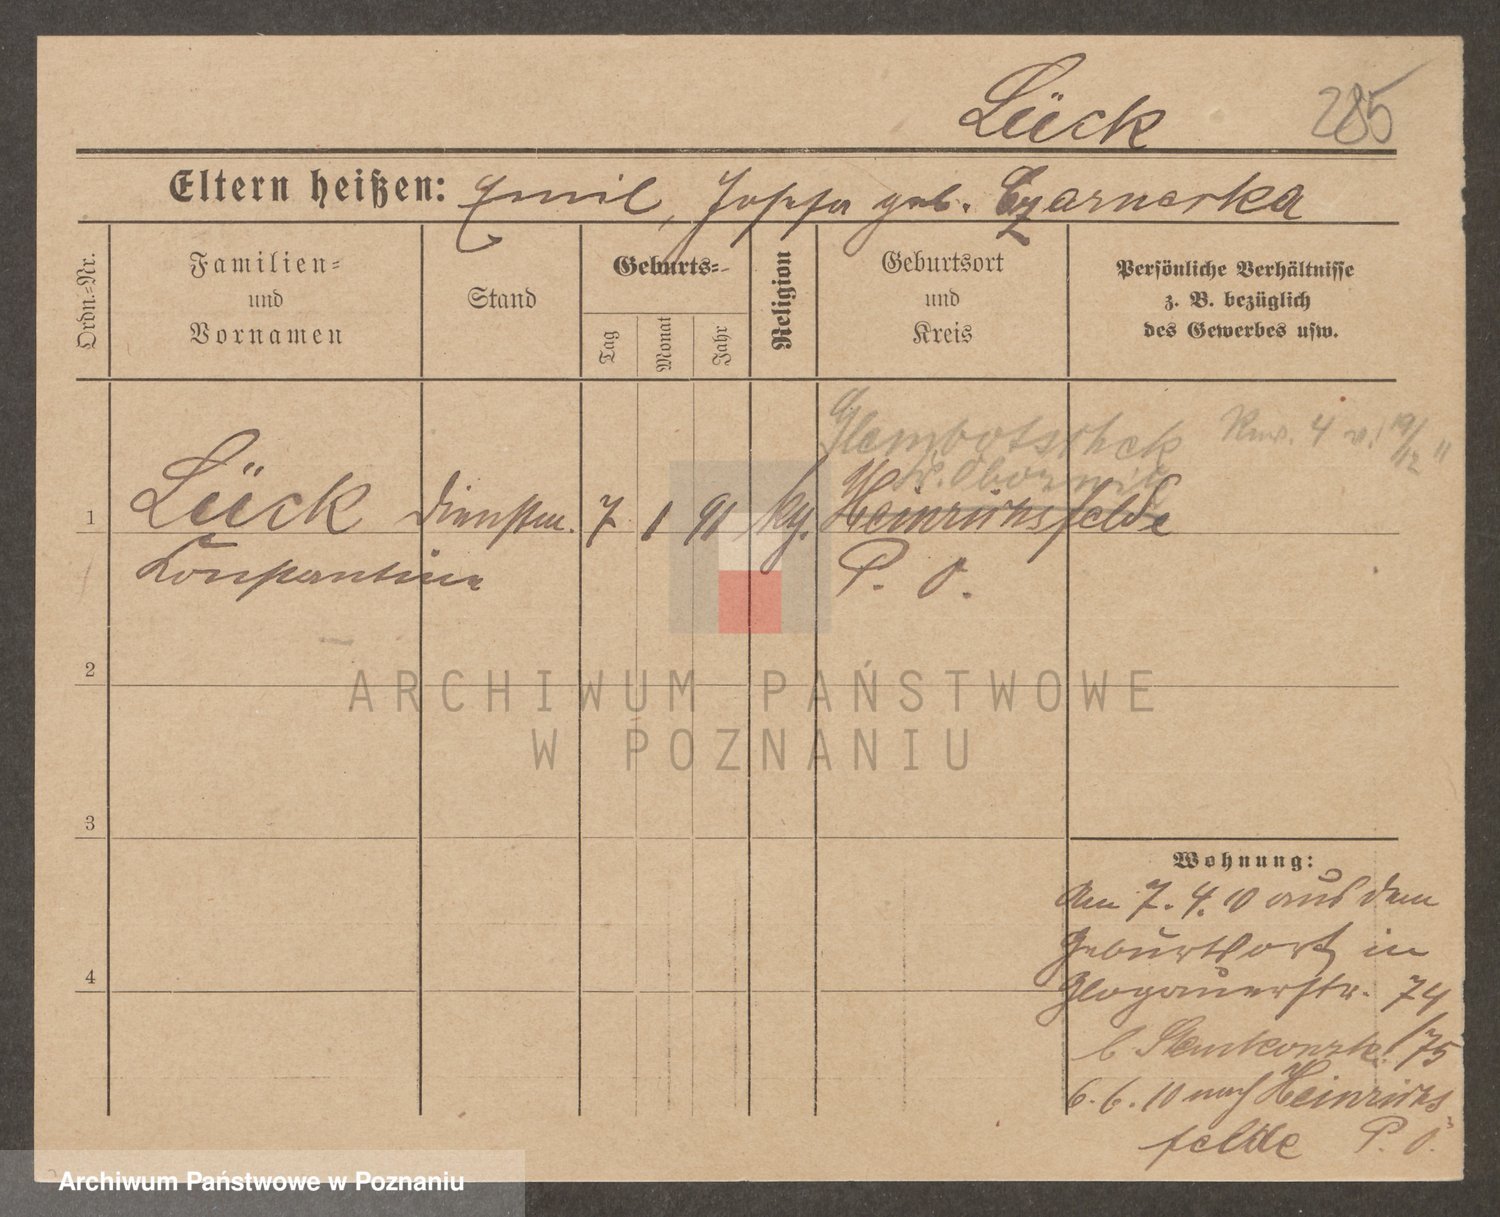 Lück 285
Eltern heißen: Emil, Josefa geb. Czarnecka
Ordn.-Nr.
Familien-
und
Vornamen
Stand
Geburts-
Tag
Monat
Jahr
Religion
Geburtsort
und
Kreis
Persönliche Verhältnisse
z. B. bezüglich
des Gewerbes usw.
Glembotschek 4 19/12
Obornik
1 Lück Dienstm. 7 1 91 kg. Heinrichsfelde
Konstantina P. O.
2
ARCHIWUM PAŃSTWOWE
W POZNANIU
3
Wohnung:
Am 7. 4. 10 aus dem
Geburtsort in
4
Glogauerstr. 74/75
b.
6. 6. 10 nach Heinrichs
felde P. O.
Archiwum Państwowe w Poznaniu